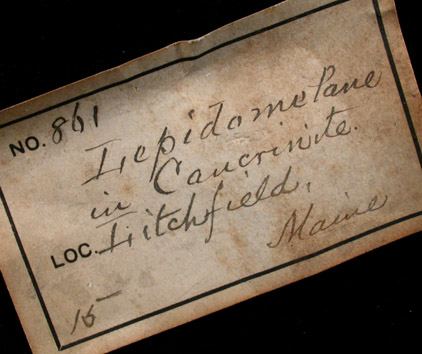 NO. 861
Lepidomelane
in Cancrinite.
LOC. Litchfield,
Maine
15